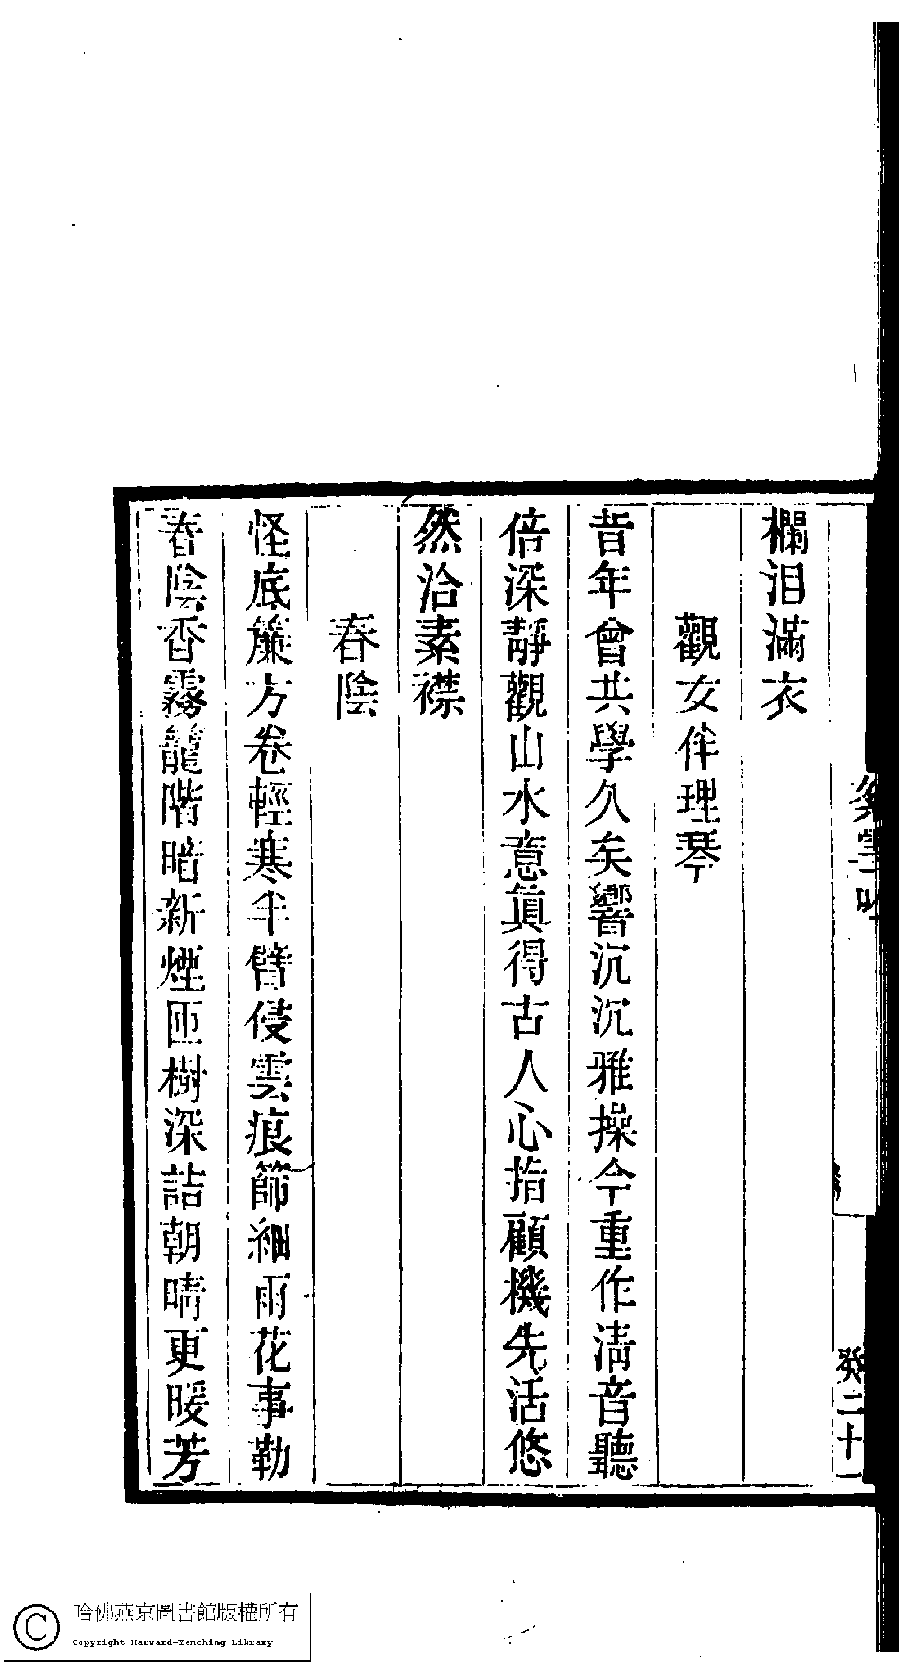 欄泪滿衣
觀女伴理琴
昔年曾共學久矣響沉沉雅操今重作清音聽
倍深靜觀山水意眞得古人心指顧機先活悠
然洽素襟
春陰
怪底簾方卷輕寒半臂侵雲痕篩細雨花事勒
春陰香霧籠階暗新煙匝樹深詰朝晴更暖芳
癸二十一
哈佛燕京圖書館版權所有
Copyright Harvard-Yenching Library